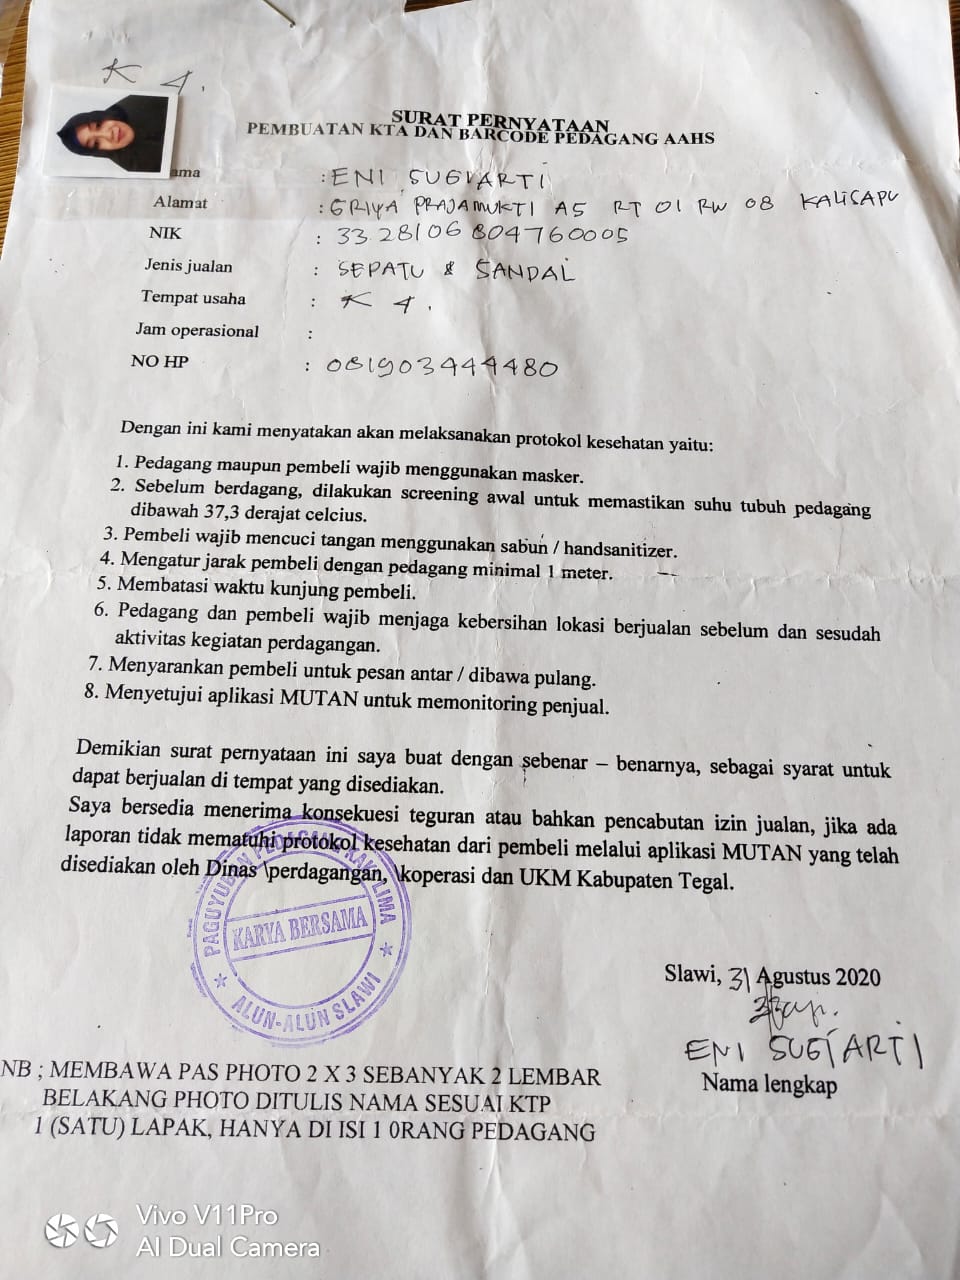 K 4.
SURAT PERNYATAAN
PEMBUATAN KTA DAN BARCODE PEDAGANG AAHS
ama : ENI SUGIARTI
Alamat : GRIYA PRAJAMUKTI A5 RT 01 RW 08 KALISAPU
NIK : 33 28106 804760005
Jenis jualan : SEPATU & SANDAL
Tempat usaha : K 4.
Jam operasional :
NO HP : 081903444480
Dengan ini kami menyatakan akan melaksanakan protokol kesehatan yaitu:
1. Pedagang maupun pembeli wajib menggunakan masker.
2. Sebelum berdagang, dilakukan screening awal untuk memastikan suhu tubuh pedagang
dibawah 37,3 derajat celcius.
3. Pembeli wajib mencuci tangan menggunakan sabun / handsanitizer.
4. Mengatur jarak pembeli dengan pedagang minimal 1 meter.
5. Membatasi waktu kunjung pembeli.
6. Pedagang dan pembeli wajib menjaga kebersihan lokasi berjualan sebelum dan sesudah
aktivitas kegiatan perdagangan.
7. Menyarankan pembeli untuk pesan antar / dibawa pulang.
8. Menyetujui aplikasi MUTAN untuk memonitoring penjual.
Demikian surat pernyataan ini saya buat dengan sebenar – benarnya, sebagai syarat untuk
dapat berjualan di tempat yang disediakan.
Saya bersedia menerima konsekuesi teguran atau bahkan pencabutan izin jualan, jika ada
laporan tidak mematuhi protokol kesehatan dari pembeli melalui aplikasi MUTAN yang telah
disediakan oleh Dinas \perdagangan, \koperasi dan UKM Kabupaten Tegal.
PAGUYUBUN PEDAGANG KAKI LIMA
KARYA BERSAMA
ALUN-ALUN SLAWI
Slawi, 31 Agustus 2020
ENI SUGIARTI
Nama lengkap
NB ; MEMBAWA PAS PHOTO 2 X 3 SEBANYAK 2 LEMBAR
BELAKANG PHOTO DITULIS NAMA SESUAI KTP
1 (SATU) LAPAK, HANYA DI ISI 1 0RANG PEDAGANG
Vivo V11Pro
AI Dual Camera